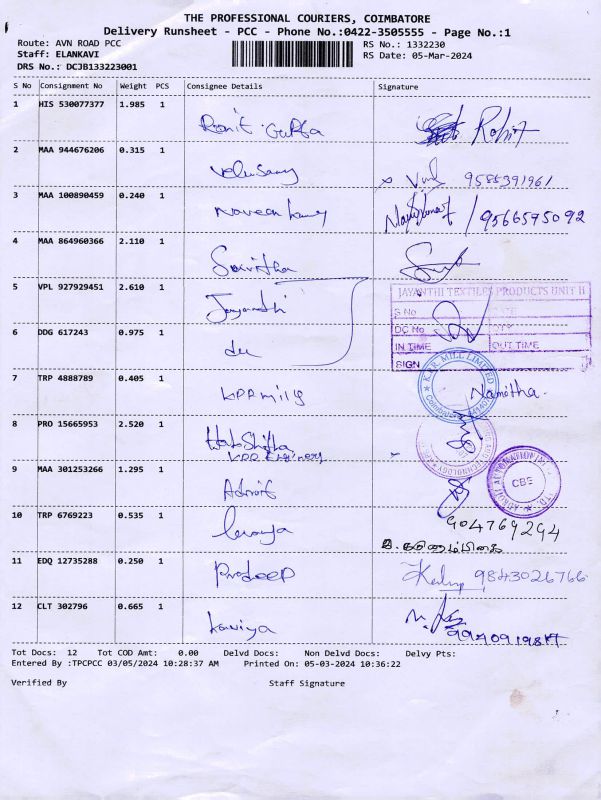 THE PROFESSIONAL COURIERS, COIMBATORE
Delivery Runsheet - PCC - Phone No.:0422-3505555 - Page No.:1
Route: AVN ROAD PCC RS No.: 1332230
Staff: ELANKAVI RS Date: 05-Mar-2024
DRS No.: DCJB133223001
S No Consignment No Weight PCS Consignee Details Signature
1 HIS 530077377 1.985 1
Ronit Gupta Rohit
2 MAA 944676206 0.315 1
Velusamy 9585391961
3 MAA 100890459 0.240 1
Naveen kumar 9566595092
4 MAA 864960366 2.110 1
Savitha
5 VPL 927929451 2.610 1
Jayanthi
JAYANTHI TEXTILES PRODUCTS UNIT II
S No
DC No
6 DDG 617243 0.975 1
du
IN TIME OUT TIME
SIGN
7 TRP 4888789 0.405 1
KPR mills Namitha.
K.P.R. MILL LIMITED
8 PRO 15665953 2.520 1
9 MAA 301253266 1.295 1
CBE
10 TRP 6769223 0.535 1
904769294
11 EDQ 12735288 0.250 1
Pradeep 9843026766
12 CLT 302796 0.665 1
Kaviya
Tot Docs: 12 Tot COD Amt: 0.00 Delvd Docs: Non Delvd Docs: Delvy Pts:
Entered By :TPCPCC 03/05/2024 10:28:37 AM Printed On: 05-03-2024 10:36:22
Verified By Staff Signature